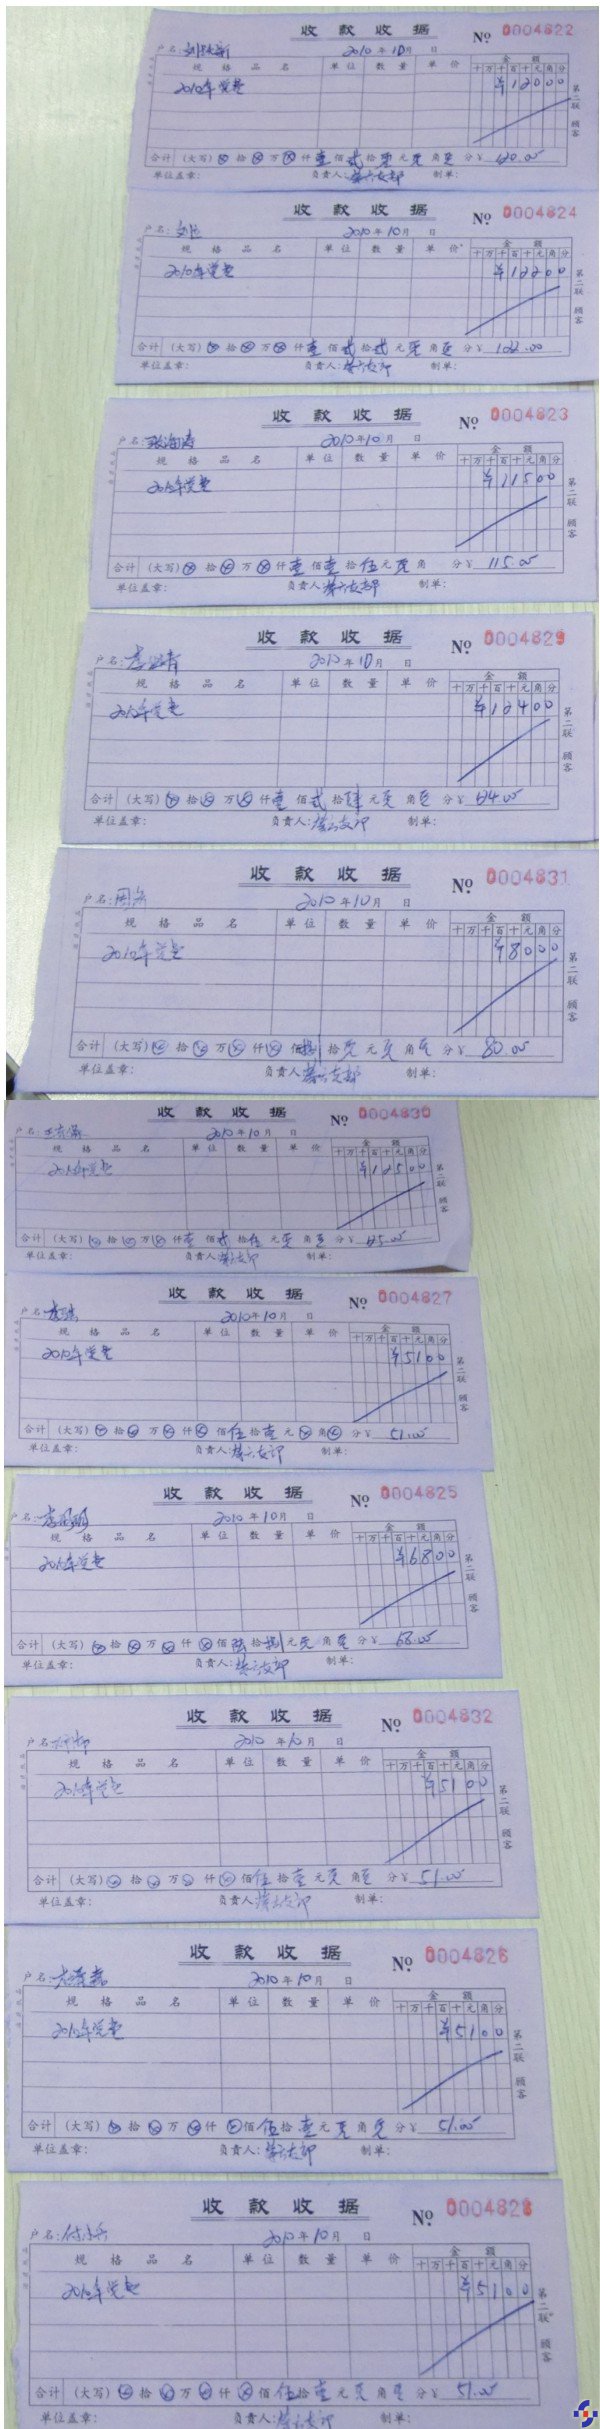 收款收据 № 0004822
户名: 2010年10月 日
规格品名 单位 数量 单价 金额
十万千百十元角分
2010年党费 ¥12000
第二联 顾客
合计 (大写)⊗拾⊗万⊗仟壹佰贰拾零元零角零分¥ 120.00
单位盖章: 负责人:第六支部 制单:
收款收据 № 0004824
户名: 2010年10月 日
规格品名 单位 数量 单价 金额
十万千百十元角分
2010年党费 ¥12200
第二联 顾客
合计 (大写)⊗拾⊗万⊗仟壹佰贰拾贰元零角零分¥ 122.00
单位盖章: 负责人:第六支部 制单:
收款收据 № 0004823
户名:张海涛 2010年10月 日
规格品名 单位 数量 单价 金额
十万千百十元角分
2010年党费 ¥11500
第二联 顾客
合计 (大写)⊗拾⊗万⊗仟壹佰壹拾伍元零角 分¥ 115.00
单位盖章: 负责人:第六支部 制单:
收款收据 № 0004829
户名: 2010年10月 日
规格品名 单位 数量 单价 金额
十万千百十元角分
2010年党费 ¥12400
第二联 顾客
合计 (大写)⊗拾⊗万⊗仟壹佰贰拾肆元零角零分¥ 124.00
单位盖章: 负责人:第六支部 制单:
收款收据 № 0004831
户名: 2010年10月 日
规格品名 单位 数量 单价 金额
十万千百十元角分
2010年党费 ¥8000
第二联 顾客
合计 (大写)⊗拾⊗万⊗仟⊗佰捌拾零元零角零分¥ 80.00
单位盖章: 负责人:第六支部 制单:
收款收据 № 0004830
户名: 2010年10月 日
规格品名 单位 数量 单价 金额
十万千百十元角分
2010年党费 ¥12500
第二联 顾客
合计 (大写)⊗拾⊗万⊗仟壹佰贰拾伍元零角零分¥ 125.00
单位盖章: 负责人:第六支部 制单:
收款收据 № 0004827
户名: 2010年10月 日
规格品名 单位 数量 单价 金额
十万千百十元角分
2010年党费 ¥5100
第二联 顾客
合计 (大写)⊗拾⊗万⊗仟⊗佰伍拾壹元⊗角⊗分¥ 51.00
单位盖章: 负责人:第六支部 制单:
收款收据 № 0004825
户名: 2010年10月 日
规格品名 单位 数量 单价 金额
十万千百十元角分
2010年党费 ¥6800
第二联 顾客
合计 (大写)⊗拾⊗万⊗仟⊗佰陆拾捌元零角零分¥ 68.00
单位盖章: 负责人:第六支部 制单:
收款收据 № 0004832
户名: 2010年10月 日
规格品名 单位 数量 单价 金额
十万千百十元角分
2010年党费 ¥5100
第二联 顾客
合计 (大写)⊗拾⊗万⊗仟⊗佰伍拾壹元零角零分¥ 51.00
单位盖章: 负责人:第六支部 制单:
收款收据 № 0004826
户名: 2010年10月 日
规格品名 单位 数量 单价 金额
十万千百十元角分
2010年党费 ¥5100
第二联 顾客
合计 (大写)⊗拾⊗万⊗仟⊗佰伍拾壹元零角零分¥ 51.00
单位盖章: 负责人:第六支部 制单:
收款收据 № 0004828
户名: 2010年10月 日
规格品名 单位 数量 单价 金额
十万千百十元角分
2010年党费 ¥5100
第二联 顾客
合计 (大写)⊗拾⊗万⊗仟⊗佰伍拾壹元零角零分¥ 51.00
单位盖章: 负责人:第六支部 制单: